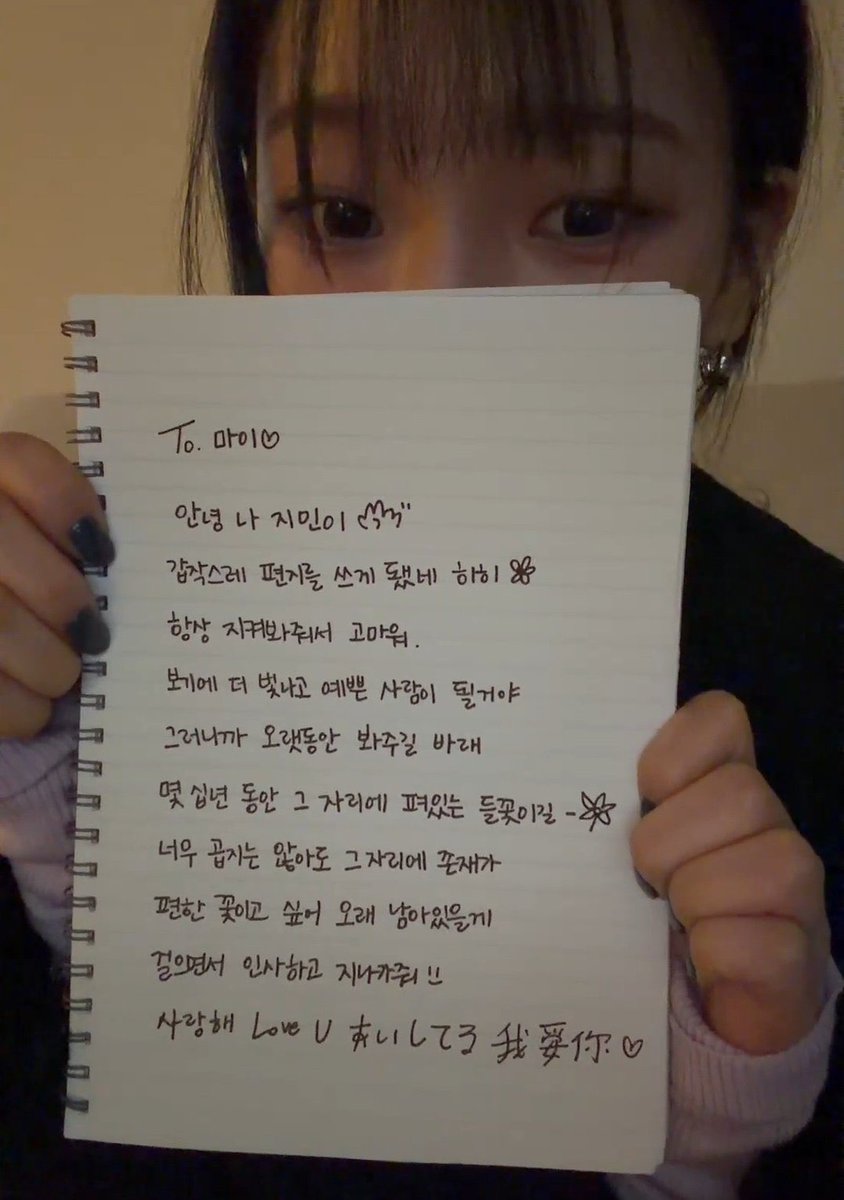 To. 마이♡
안녕 나 지민이
갑작스레 편지를 쓰게 됐네 히히
항상 지켜봐줘서 고마워.
보기에 더 빛나고 예쁜 사람이 될거야
그러니까 오랫동안 봐주길 바래
몇 십년 동안 그 자리에 펴있는 들꽃이길 -
너무 곱지는 않아도 그 자리에 존재가
편한 꽃이고 싶어 오래 남아있을게
걸으면서 인사하고 지나가줘!!
사랑해 Love U あいしてる 我愛你♡